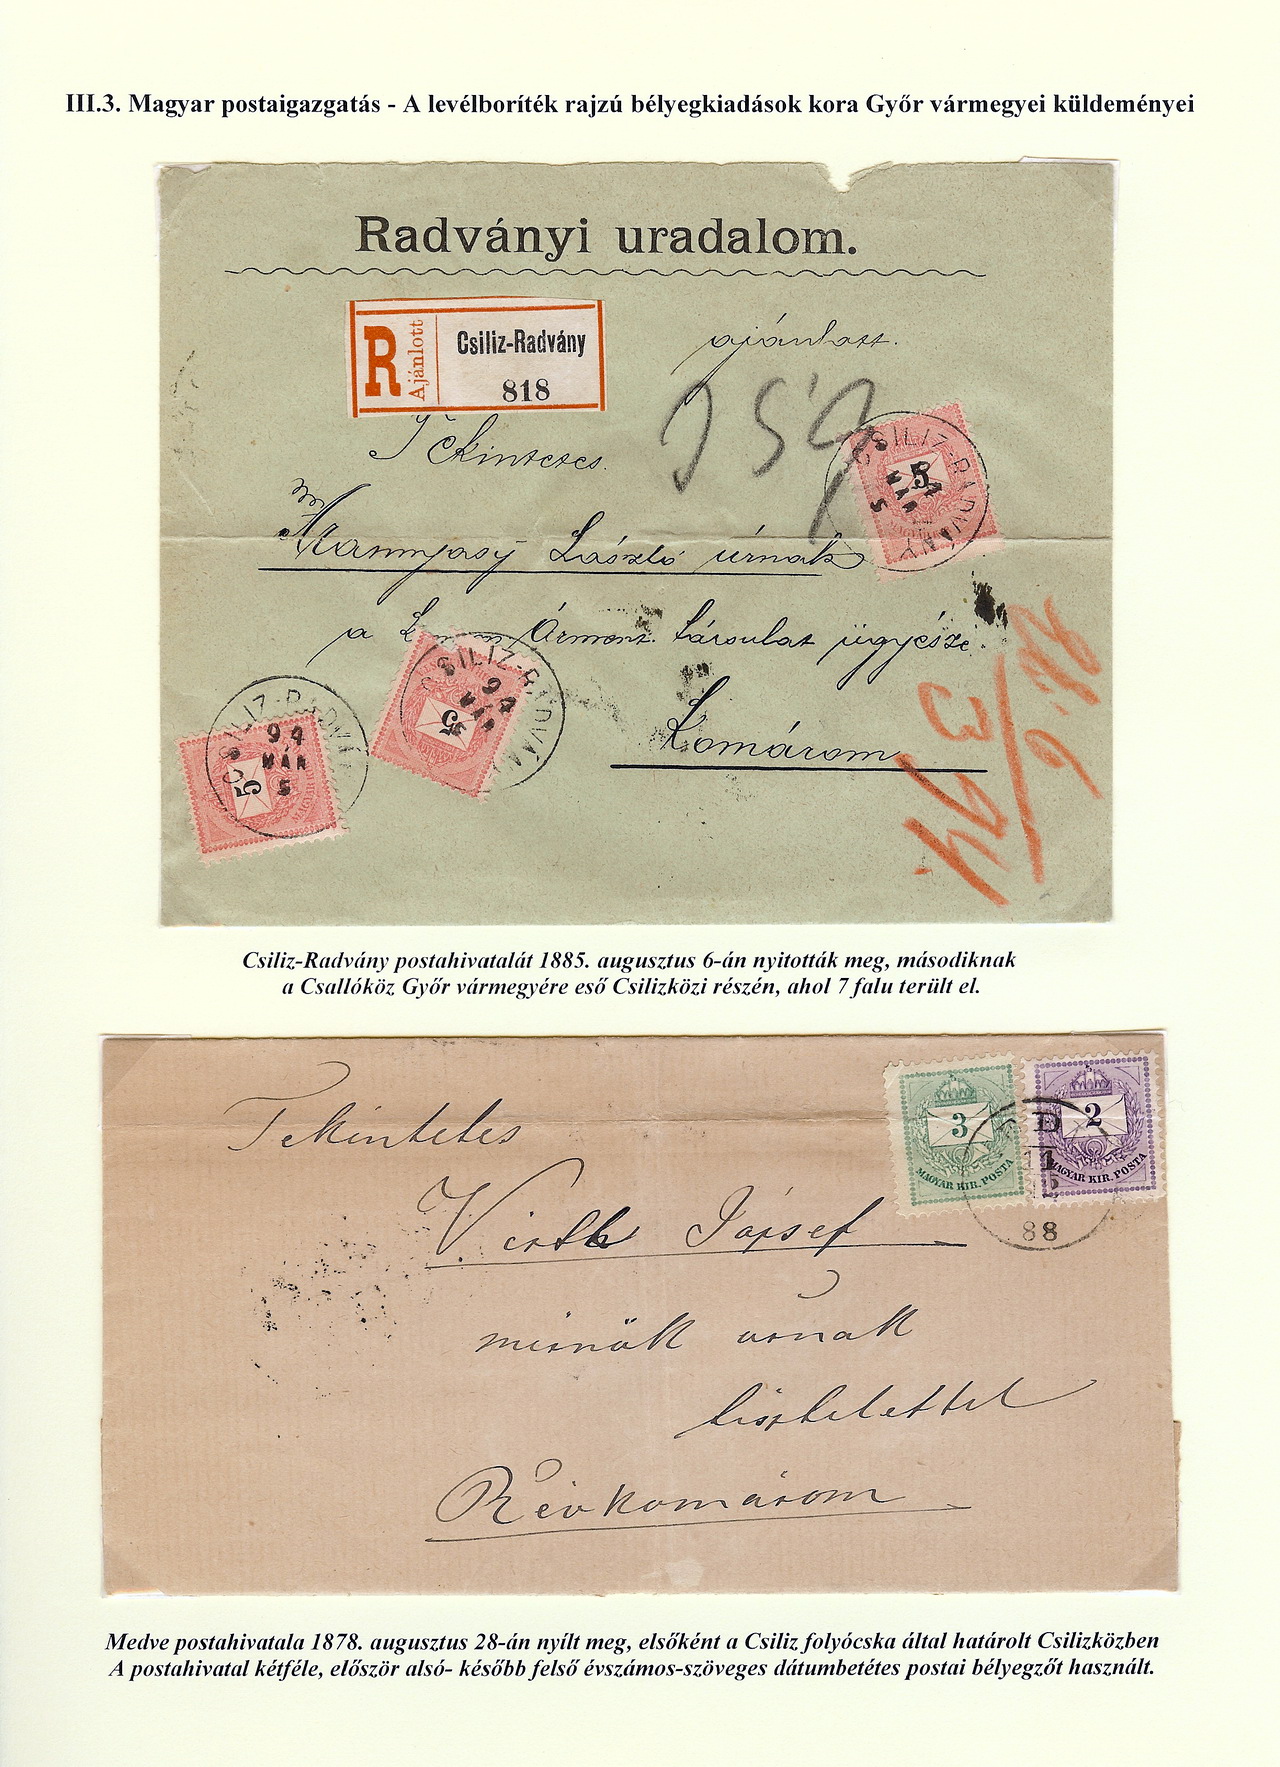 III.3. Magyar postaigazgatás - A levélboríték rajzú bélyegkiadások kora Győr vármegyei küldeményei
Radványi uradalom.
R Ajánlott
Csiliz-Radvány
818
ajánlott.
Tekintetes
László úrnak
a Árment. Társulat ügyésze
Komárom
CSILIZ-RADVÁNY
94 MÁR 5
5
CSILIZ-RADVÁNY
94 MÁR
5
CSILIZ-RADVÁNY
94 MÁR 5
5
Csiliz-Radvány postahivatalát 1885. augusztus 6-án nyitották meg, másodiknak
a Csallóköz Győr vármegyére eső Csilizközi részén, ahol 7 falu terült el.
3
MAGYAR KIR. POSTA
2
MAGYAR KIR. POSTA
88
Tekintetes
Virth József
mérnök úrnak
tisztelettel
Révkomárom
Medve postahivatala 1878. augusztus 28-án nyílt meg, elsőként a Csiliz folyócska által határolt Csilizközben
A postahivatal kétféle, először alsó- később felső évszámos-szöveges dátumbetétes postai bélyegzőt használt.